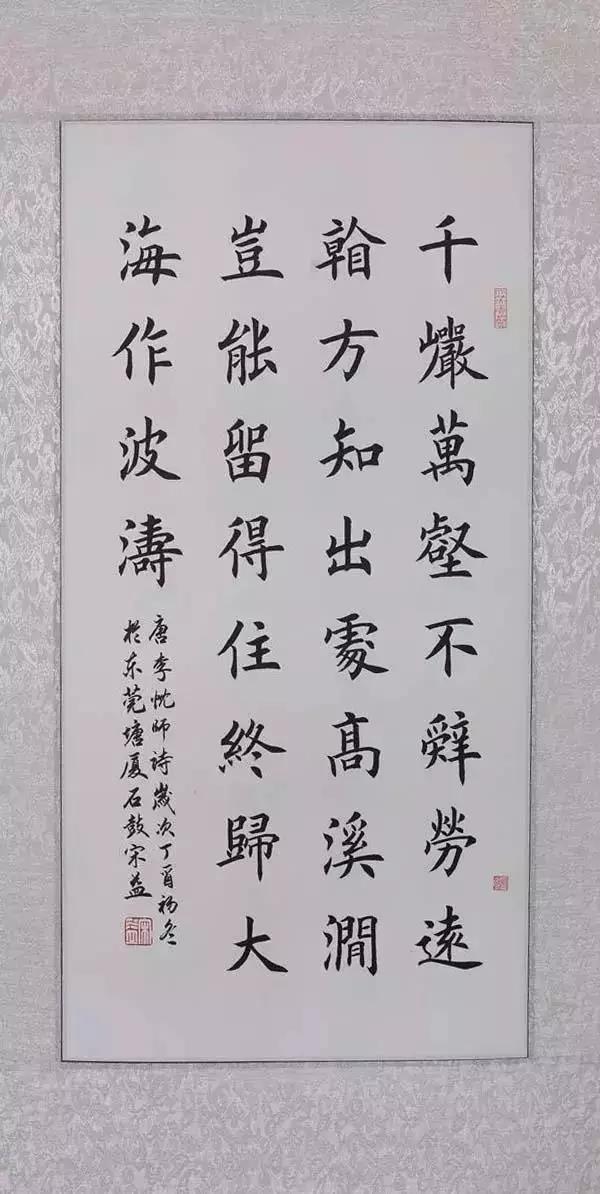 千巗萬壑不辭勞遠
看方知出處髙溪澗
豈能留得住終歸大
海作波濤
唐李忱師詩歲次丁酉初冬
於东莞塘厦石鼓宋益